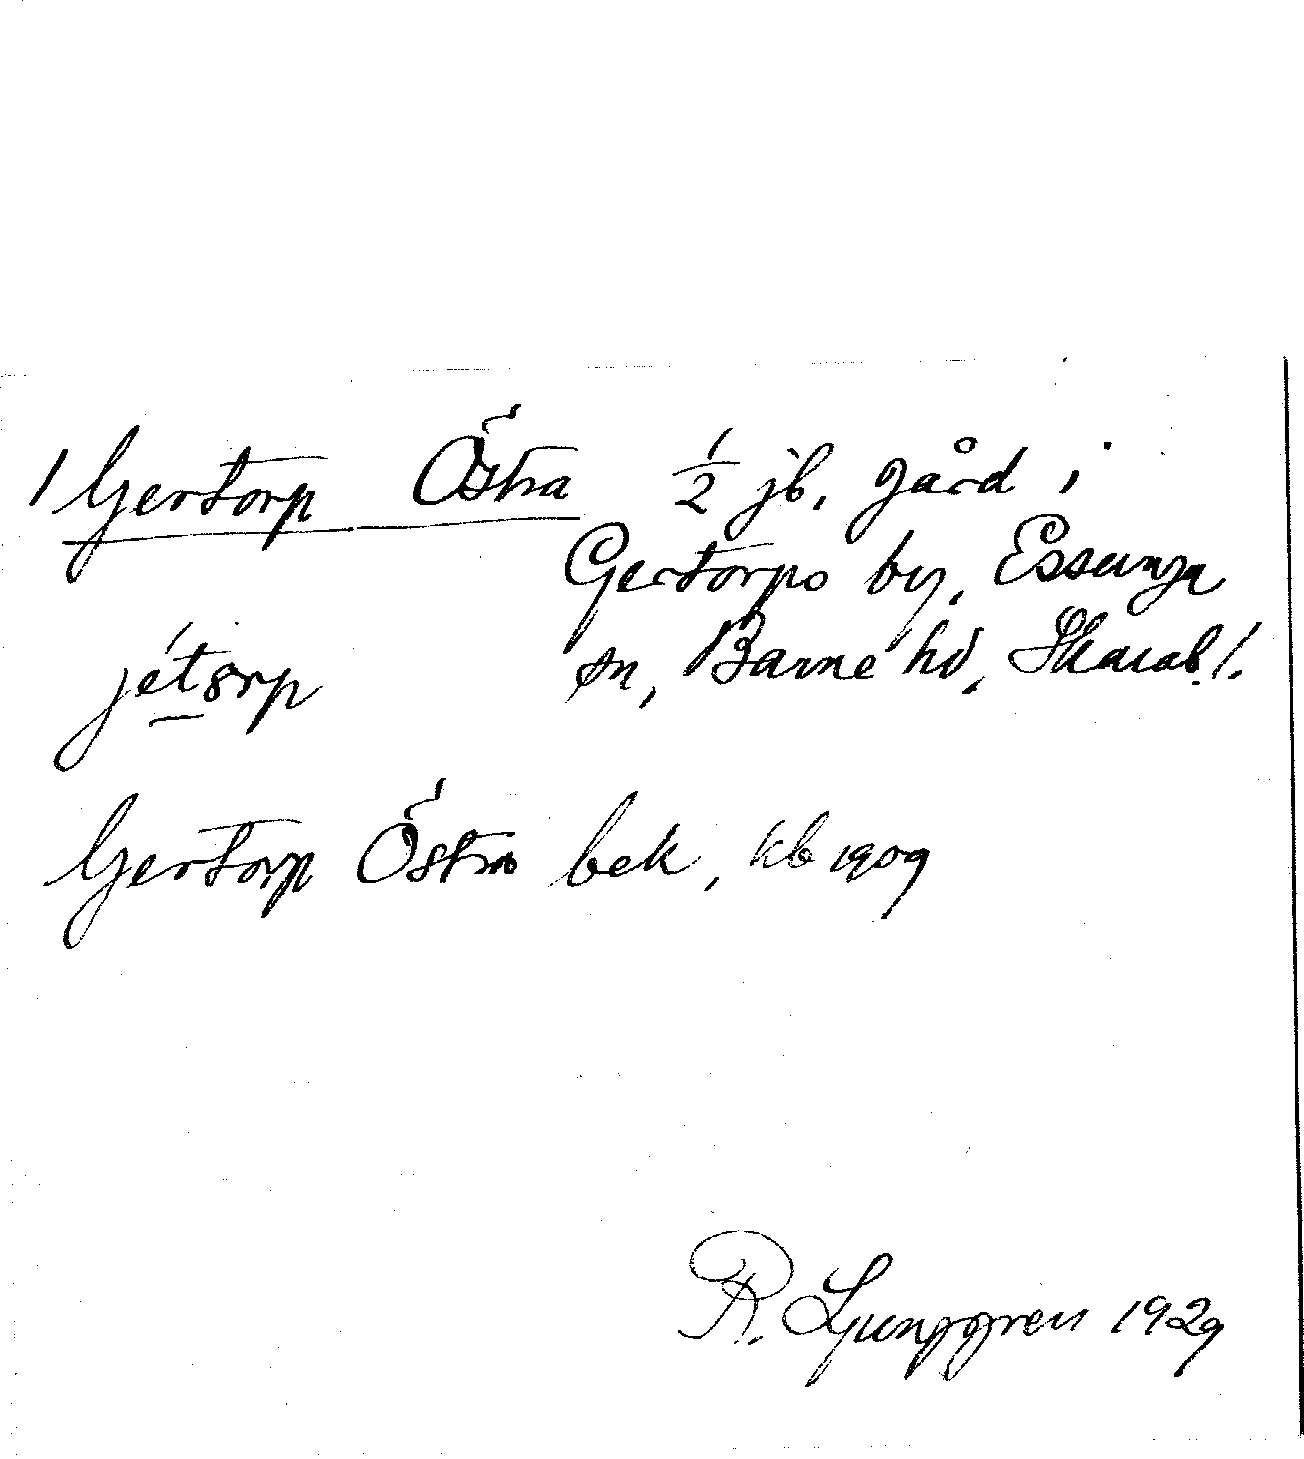 1 Gertorp Östra 1/2 jb. gård i
Gertorps by, Essunga
jétsrp sn, Barne hd, Skarab. l.
Gertorp Östra bek, kb 1909
R. Ljunggren 1929